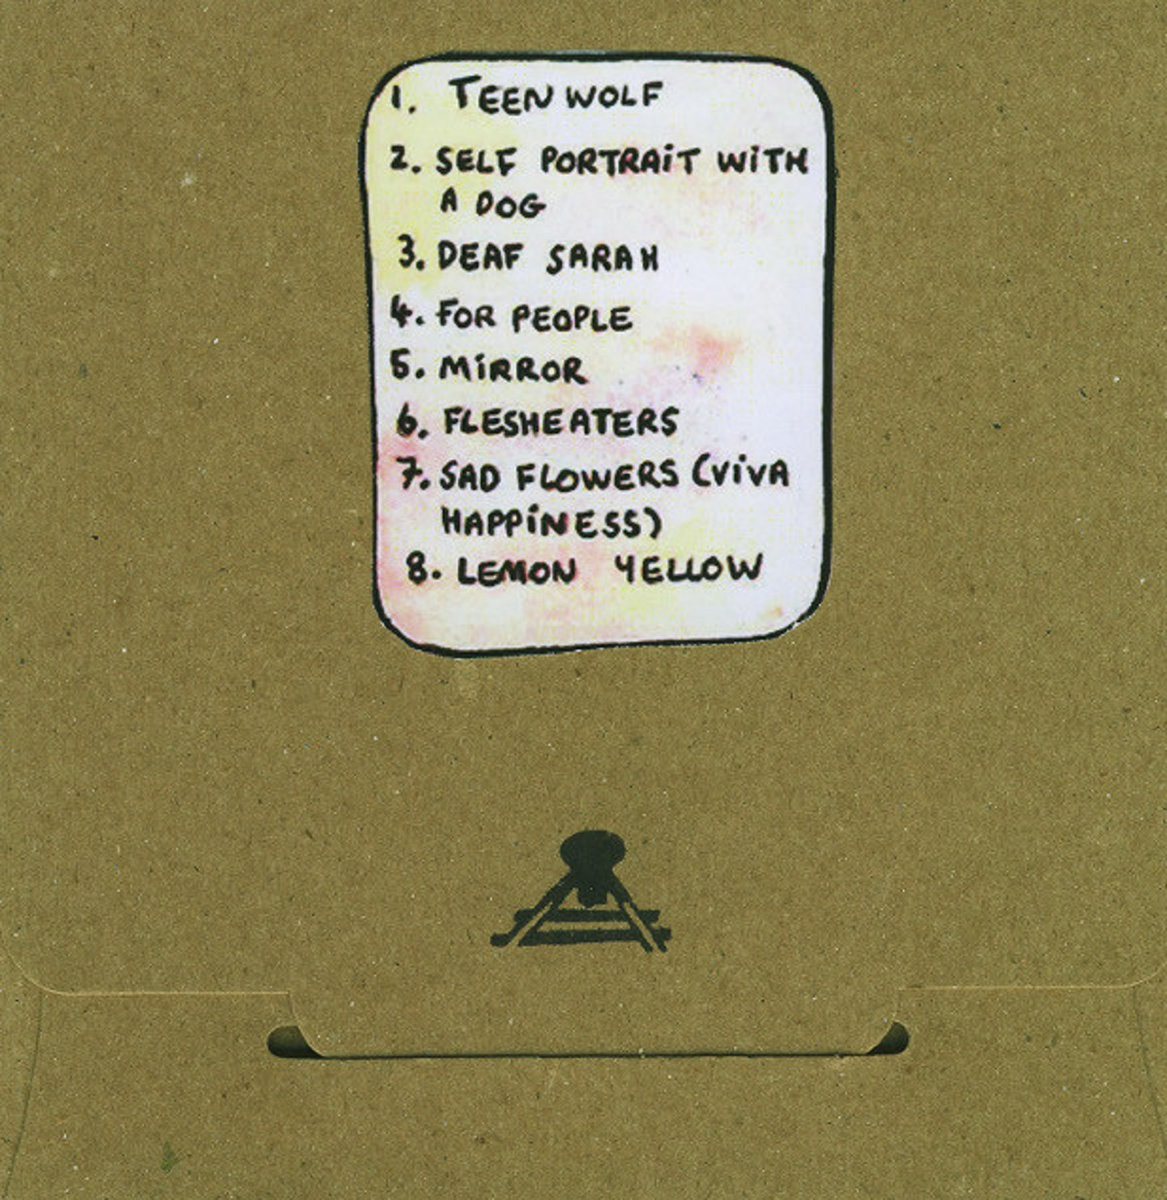 1. TEEN WOLF
2. SELF PORTRAiT WiTH
A DOG
3. DEAF SARAH
4. FOR PEOPLE
5. MiRROR
6. FLESHEATERS
7. SAD FLOWERS (ViVA
HAPPiNESS)
8. LEMON YELLOW